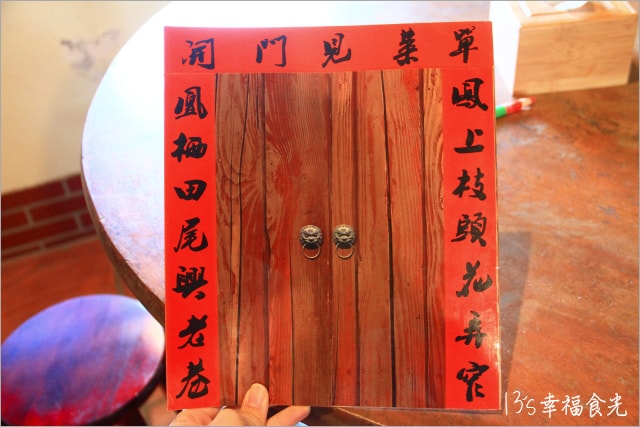 開門見菜單
鳳上枝頭花弄
凰栖田尾興老巷
13's幸福食光